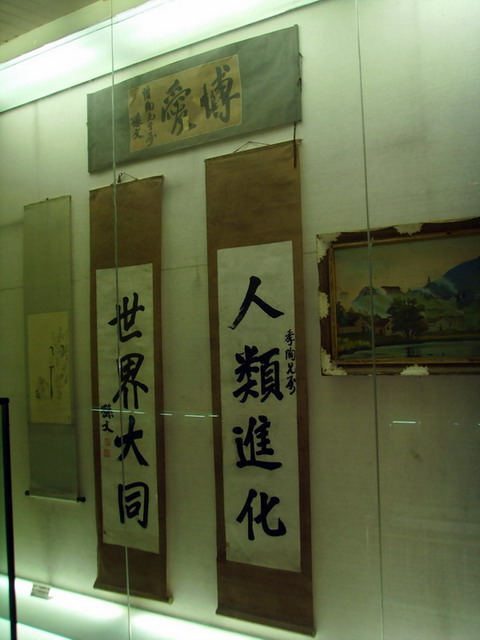 博愛
孫文
人類進化
季陶兄屬
世界大同
孫文